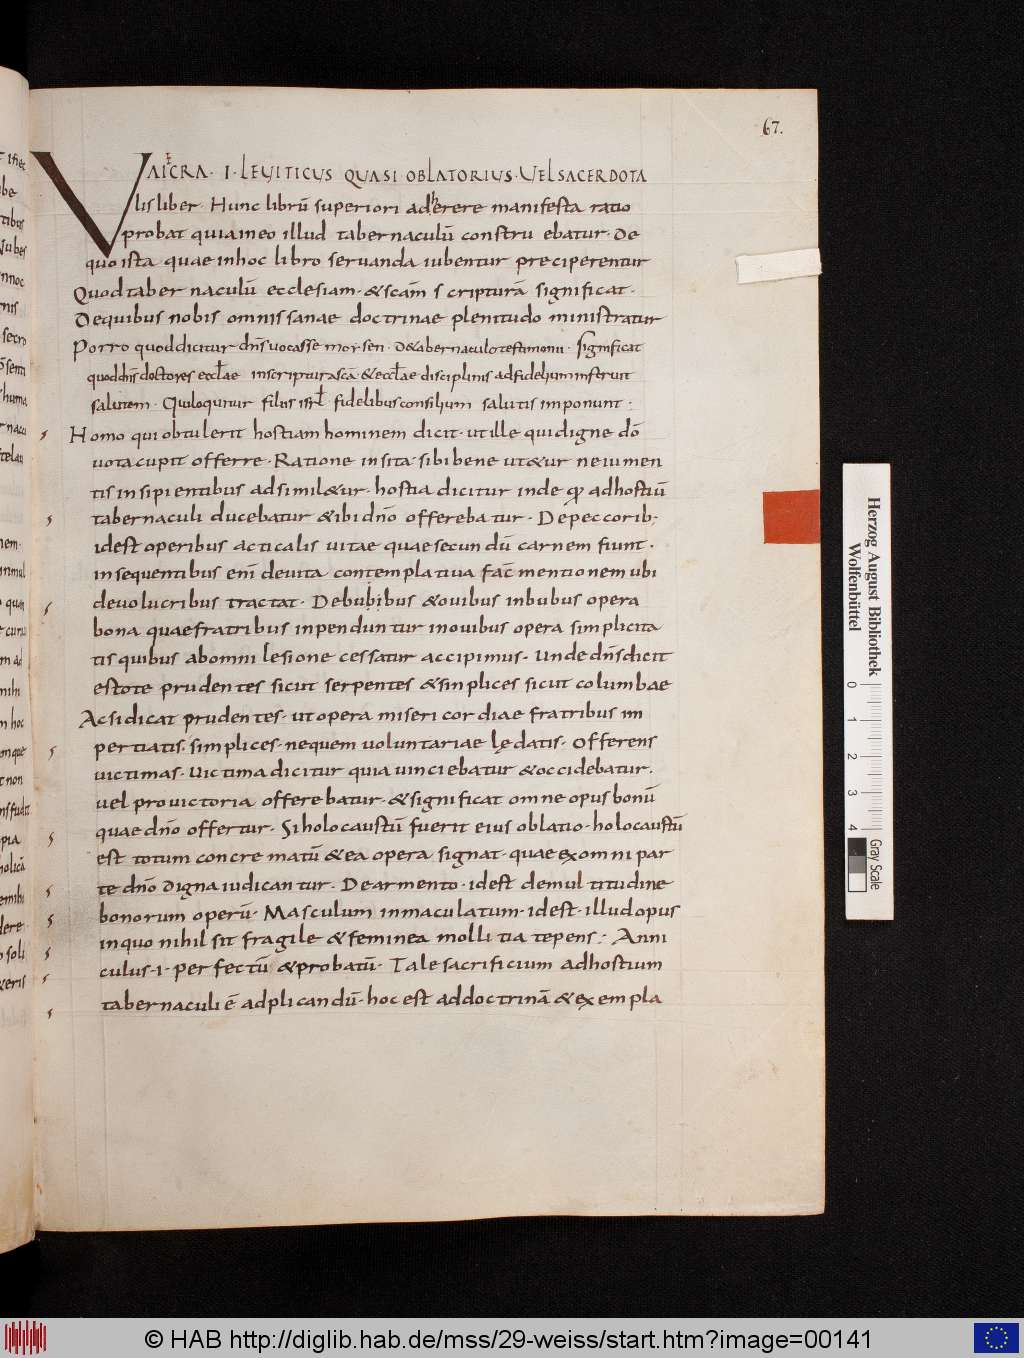 67.
VAIECRA· I· LEUITICUS QUASI OBLATORIUS· UEL SACERDOTA
lis liber· Hunc librū superiori adherere manifesta ratio
probat quia in eo illud tabernaculū construebatur· De
quo ista quae in hoc libro seruanda iubentur preciperentur
Quod tabernaculū ecclesiam· & scām scripturā significat·
De quibus nobis omnis sanae doctrinae plenitudo ministratur
Porro quod dicitur dn̄s uocasse moysen· de tabernaculo testimonii· significat
quod dn̄s doctores eccl̄ae in scriptura scā· & eccl̄ae disciplinis ad fidelium instruit
salutem· Qui loquitur filiis isrl̄ fidelibus consilium salutis imponunt:
Homo qui obtulerit hostiam hominem dicit· ut ille qui digne dō
uota cupit offerre· Ratione insita· sibi bene ut&ur ne iumen
tis insipientibus adsimil&ur· hostia dicitur inde qd̄ ad hostiū
tabernaculi ducebatur & ibi dn̄o offerebatur· De peccorib;
id est operibus acticalis uitae quae secundū carnem fiunt·
in sequentibus eni̅ de uita contemplatiua fac̄ mentionem ubi
de uolucribus tractat· De bubibus & ouibus in bubus opera
bona quae fratribus inpenduntur in ouibus opera simplicita
tis quibus ab omni lesione cessatur accipimus· Unde dn̄s dicit
estote prudentes sicut serpentes & simplices sicut columbae
Ac si dicat prudentes· ut opera misericordiae fratribus im
pertiatis· simplices· ne quem uoluntariae lędatis· Offerens
uictimas· Uictima dicitur quia uinciebatur & occidebatur·
uel pro uictoria offerebatur· & significat omne opus bonū
quae dn̄o offertur· Si holocaustū fuerit eius oblatio· holocaustū
est totum concrematū & ea opera signat· quae ex omni par
te dn̄o digna iudicantur· De armento· id est de multitudine
bonorum operū· Masculum inmaculatum· id est· illud opus
in quo nihil sit fragile & feminea mollitia tepens:· Anni
culus· i· perfectū & probatū· Tale sacrificium ad hostium
tabernaculi ē adplicandū· hoc est ad doctrinā & exempla
Herzog August Bibliothek
Wolfenbüttel
0 1 2 3 4
Gray Scale
© HAB http://diglib.hab.de/mss/29-weiss/start.htm?image=00141